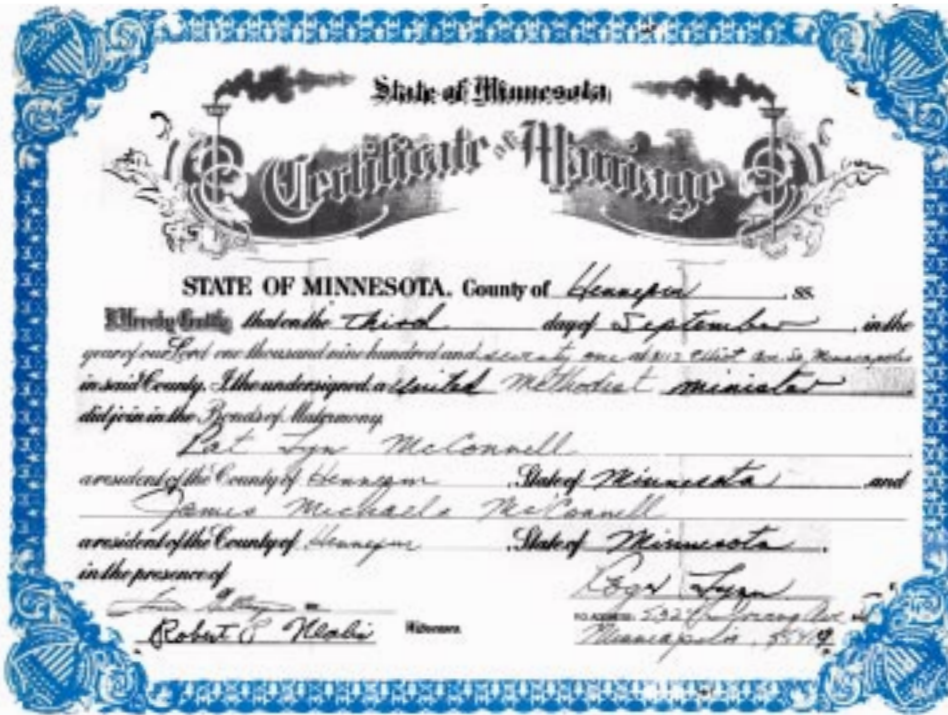 State of Minnesota
Certificate of Marriage
STATE OF MINNESOTA. County of Hennepin, SS.
I Hereby Certify that on the third day of September, in the
year of our Lord one thousand nine hundred and seventy one at Elliot Ave. So, Minneapolis
in said County, I the undersigned a United Methodist minister
did join in the Bonds of Matrimony,
Pat Lyn McConnell
a resident of the County of Hennepin, State of Minnesota and
James Michaele McConnell
a resident of the County of Hennepin, State of Minnesota,
in the presence of
Roger Lynn
Robert Witnesses.
Ave
Minneapolis,